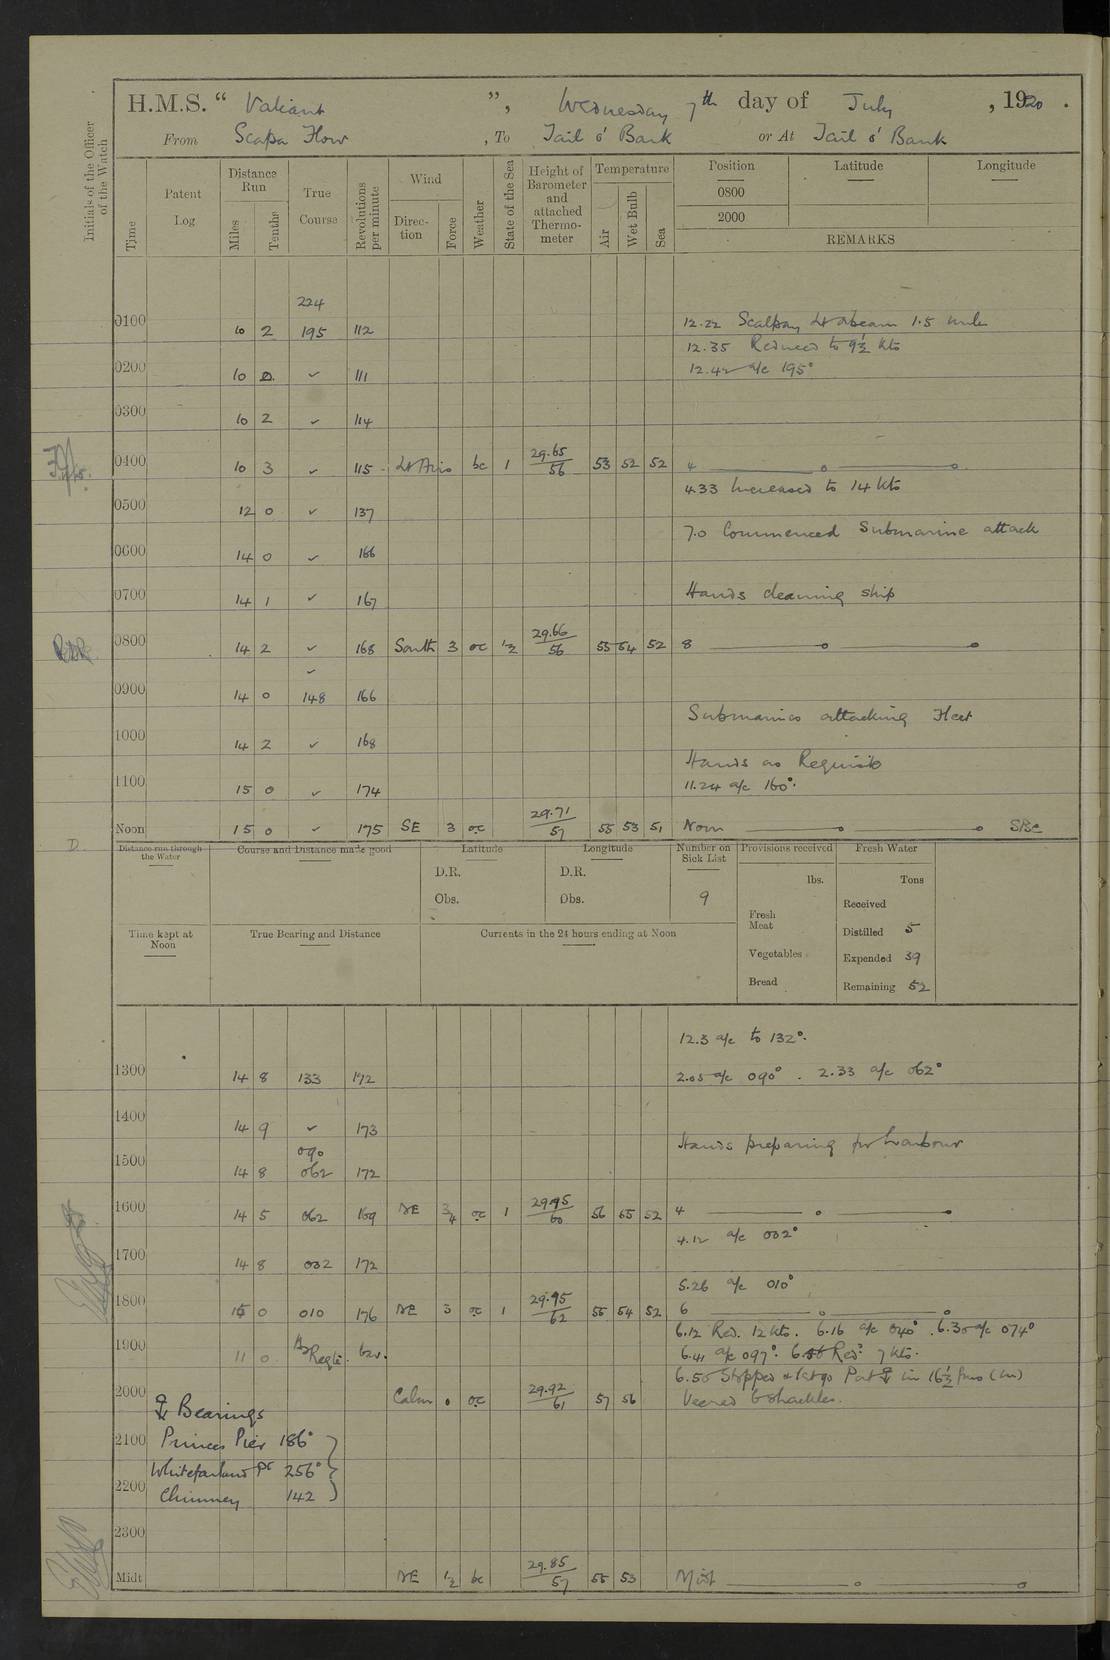 H.M.S. “ Valiant ”, Wednesday 7th day of July , 1920 .
From Scapa Flow , To Tail o' Bank or At Tail o' Bank
Initials of the Officer of the Watch
Time Patent Log Distance Run Miles Tenths True Course Revolutions per minute Wind Direction Force Weather State of the Sea Height of Barometer and attached Thermometer Temperature Air Wet Bulb Sea Position Latitude Longitude
0800
2000
REMARKS
224
0100 10 2 195 112 12.22 Scalpay Lt abeam 1.5 mile
12.35 Reduced to 9½ kts
0200 10 ✓ 111 12.42 a/c 195°
0300 10 2 ✓ 114
0400 10 3 ✓ 115 Lt Airs bc 1 29.65/56 53 52 52 4
4.33 Increased to 14 kts
0500 12 0 ✓ 137
7.0 Commenced Submarine attack
0600 14 0 ✓ 166
0700 14 1 ✓ 167 Hands cleaning ship
0800 14 2 ✓ 168 South 3 oc ½ 29.66/56 55 54 52 8
✓
0900 14 0 148 166
Submarines attacking Fleet
1000 14 2 ✓ 168
Hands as Requisite
1100 15 0 ✓ 174 11.24 a/c 160°.
Noon 15 0 ✓ 175 SE 3 oc 29.71/57 55 53 51 Noon
Distance run through the Water Course and Distance made good Latitude Longitude Number on Sick List Provisions received Fresh Water
D.R. D.R. lbs. Tons
Obs. Obs. 9 Received
Fresh Meat Distilled 5
Time kept at Noon True Bearing and Distance Currents in the 24 hours ending at Noon
Vegetables Expended 39
Bread Remaining 52
12.3 a/c to 132°.
1300 14 8 133 172 2.05 a/c 090° . 2.33 a/c 062°
1400 14 9 ✓ 173
Hands preparing for harbour
090
1500 14 8 062 172
1600 14 5 062 169 NE 3/4 oc 1 29.95/60 56 55 52 4
4.12 a/c 032°
1700 14 8 032 172
5.26 a/c 010°
1800 15 0 010 176 NE 3 oc 1 29.95/62 55 54 52 6
6.12 Red. 12 kts. 6.16 a/c 040° . 6.35 a/c 074°
1900 11 0 As Reqte. 6.41 a/c 097°. Red: 7 kts.
6.50 Stopped & let go Port ⚓ in 16½ fms (m)
2000 Calm 0 oc 29.92/61 57 56 Veered 6 shackles.
⚓ Bearings
2100 Princes Pier 186°
Whitefarland Pt 256°
2200 Chimney 142
2300
Midt NE ½ bc 29.85/57 55 53 Midt